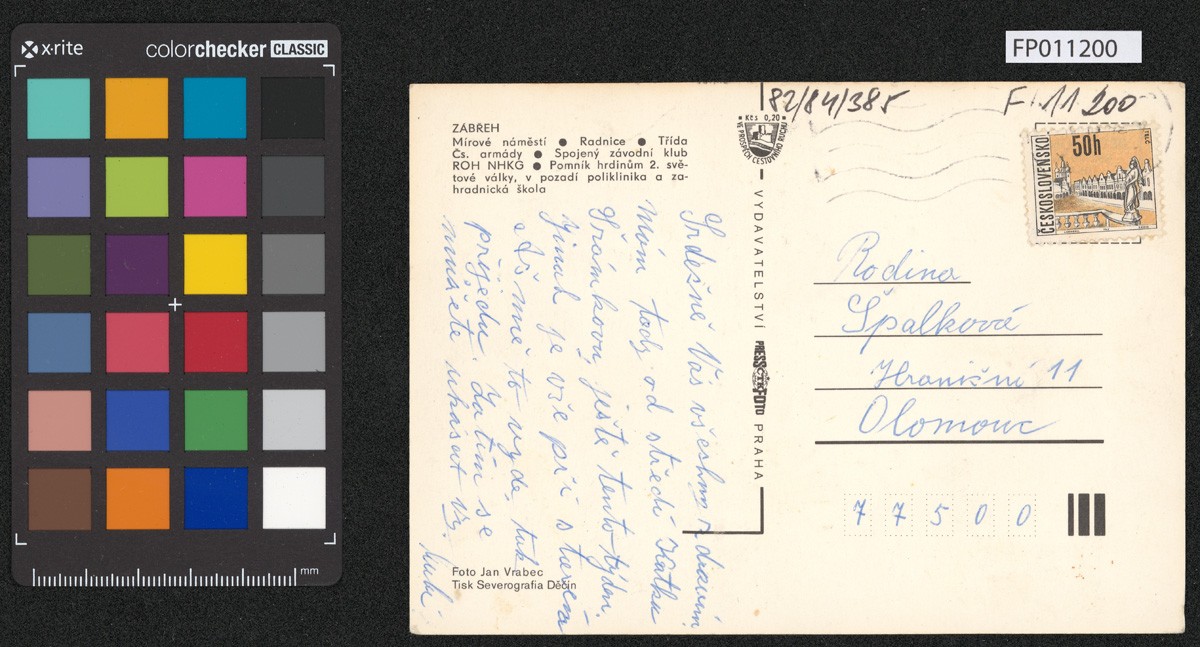 x·rite
colorchecker CLASSIC
mm
FP011200
82/84/385
F 11 200
ZÁBŘEH
Mírové náměstí ● Radnice ● Třída
Čs. armády ● Spojený závodní klub
ROH NHKG ● Pomník hrdinům 2. svě-
tové války, v pozadí poliklinika a za-
hradnická škola
Kčs 0,20
VE PROSPĚCH CESTOVNÍHO RUCHU
VYDAVATELSTVÍ PRESSFOTO PRAHA
ČTK
ČESKOSLOVENSKO
50h
TELČ
Srdečně Vás všechny zdravím.
Mám tady od středí Katku
ještě tento týden.
Jinak je vše při
Až mně to vyjde, tak
přijedu. Zatím se
můžete
Rodina
Špalkové
Hraniční 11
Olomouc
7 7 5 0 0
Foto Jan Vrabec
Tisk Severografia Děčín